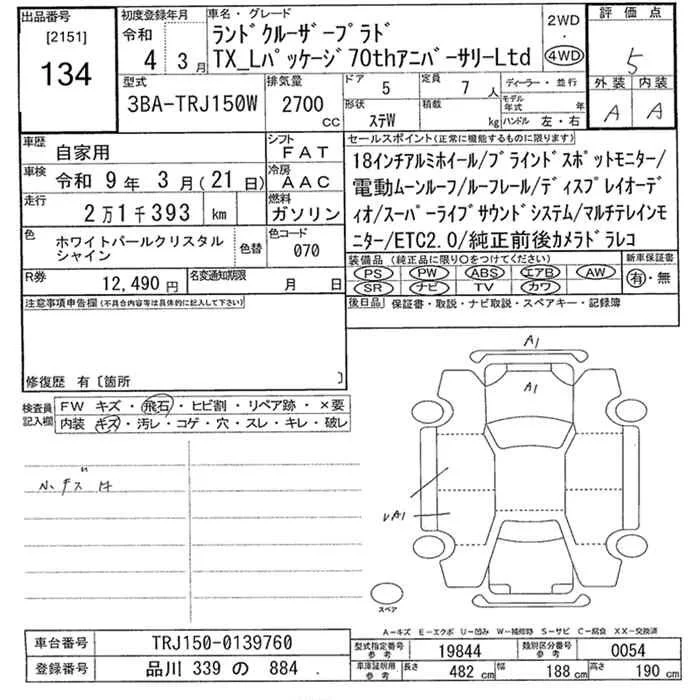 出品番号
[2151]
134
初度登録年月
令和
4 年 3 月
車名・グレード
ランドクルーザープラド
TX_Lパッケージ70thアニバーサリーLtd
2WD
・
4WD
評価点
5
外装 内装
A A
型式
3BA-TRJ150W
排気量
2700
CC
ドア 5
定員 7 人
ディーラー・並行
形状
ステW
積載
kg
モデル年式 年
ハンドル 左・右
車歴
自家用
シフト
FAT
車検 令和 9 年 3 月(21 日)
冷房
AAC
走行 2 万 1 千 393 km
燃料
ガソリン
色
ホワイトパールクリスタル
シャイン
色替
色コード
070
R券 12,490 円
名変通知期限
月 日
セールスポイント(正常に機能するものに限ります)
18インチアルミホイール/ブラインドスポットモニター/
電動ムーンルーフ/ルーフレール/ディスプレイオーデ
ィオ/スーパーライブサウンドシステム/マルチテレインモ
ニター/ETC2.0/純正前後カメラドラレコ
装備品(純正品に限り○をつけてください)
PS PW ABS エアB AW
SR ナビ TV カワ
新車保証書
有・無
後日品 保証書・取説・ナビ取説・スペアキー・記録簿
注意事項申告欄(不具合内容等は具体的に記入して下さい)
修復歴 有〔箇所 〕
検査員
記入欄
FW キズ・飛石・ヒビ割・リペア跡・×要
内装 キズ・汚レ・コゲ・穴・スレ・キレ・破レ
A1
A1
A1
スペア
A-キズ E-エクボ U-凹み W-補修跡 S-サビ C-腐食 XX-交換済
車台番号 TRJ150-0139760
登録番号 品川 339 の 884
型式指定番号
参考
19844
類別区分番号
参考
0054
車庫証明用
参考
長さ 482 cm
幅 188 cm
高さ 190 cm